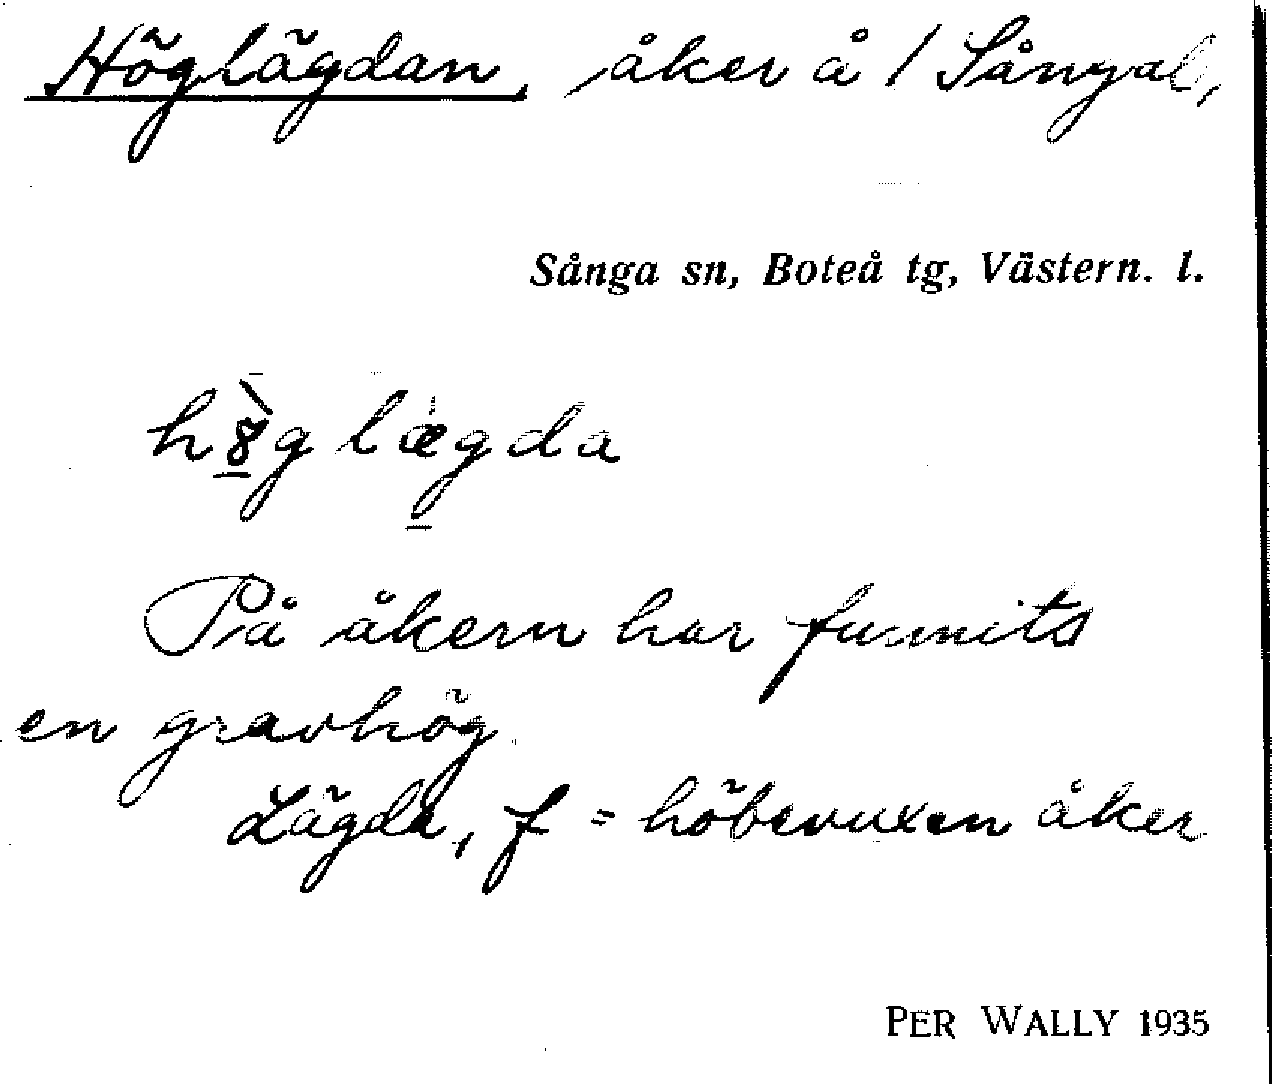 Höglägdan, åker å / Sångal,
Sånga sn, Boteå tg, Västern. l.
hög lægda
På åkern har funnits
en gravhög.
Lägda, f = höbevuxen åker
PER WALLY 1935